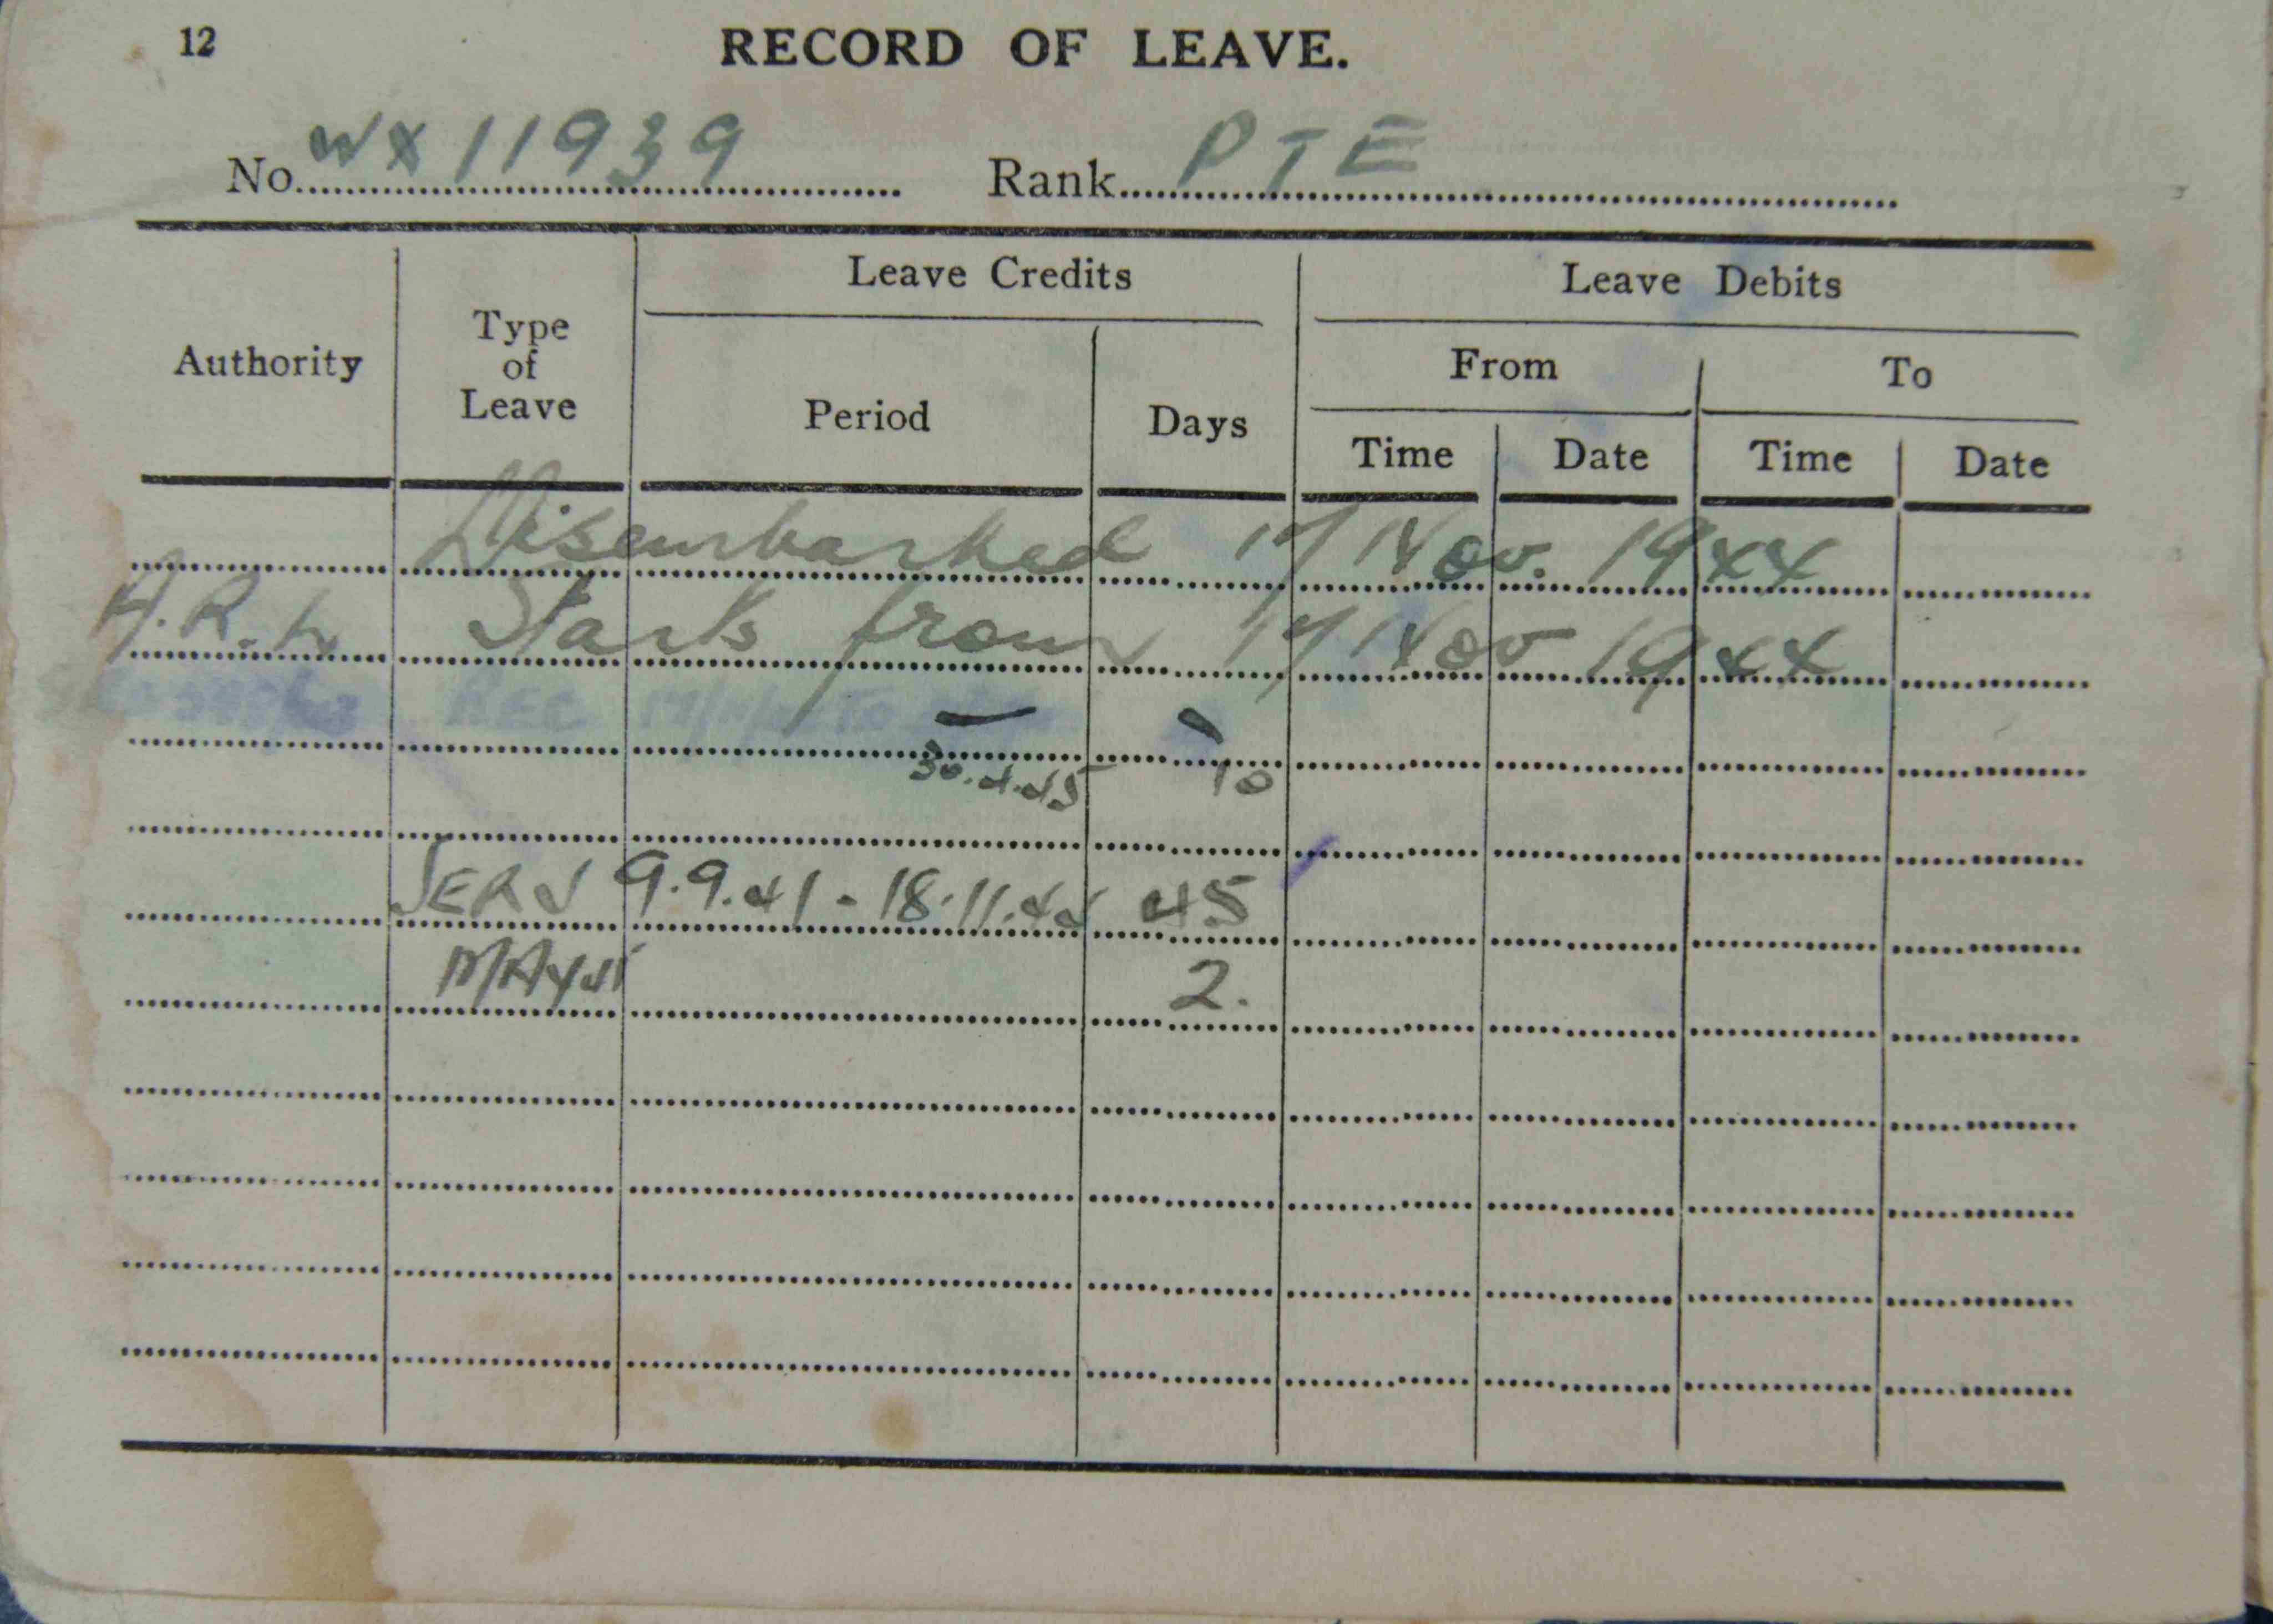 12
RECORD OF LEAVE.
No. WX 11939 Rank PTE
Authority Type of Leave Leave Credits Leave Debits
Period Days From To
Time Date Time Date
Disembarked 17 Nov. 1944
A.R.L. Starts from 17 Nov 1944
REC TO
30.4.45 10
SERV 9.9.41 - 18.11.44 45
MAY 45 2.